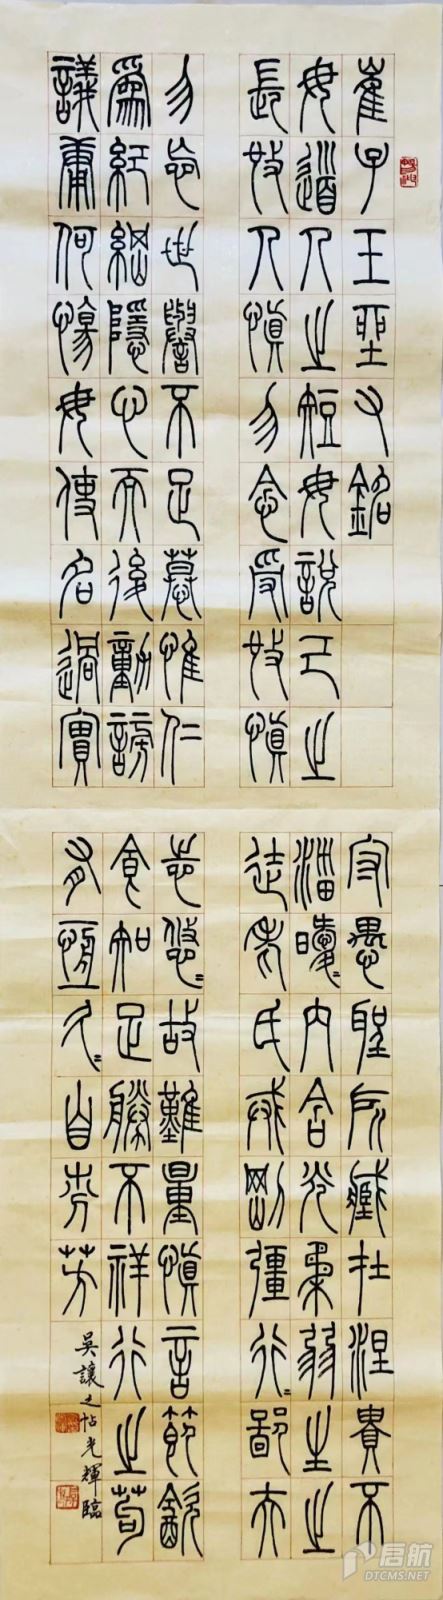 崔子玉坐右銘
毋道人之短毋說己之
長施人慎勿念受施慎
勿忘世譽不足慕惟仁
為紀綱隱心而後動謗
議庸何傷毋使名過實
守愚聖所臧在涅貴不
淄曖=內含光柔弱生之
徒老氏戒剛彊行=鄙夫
志悠=故難量慎言節飲
食知足勝不祥行之苟
有恆久=自芬芳
吳讓之帖光輝臨
启航
DTCMS.NET